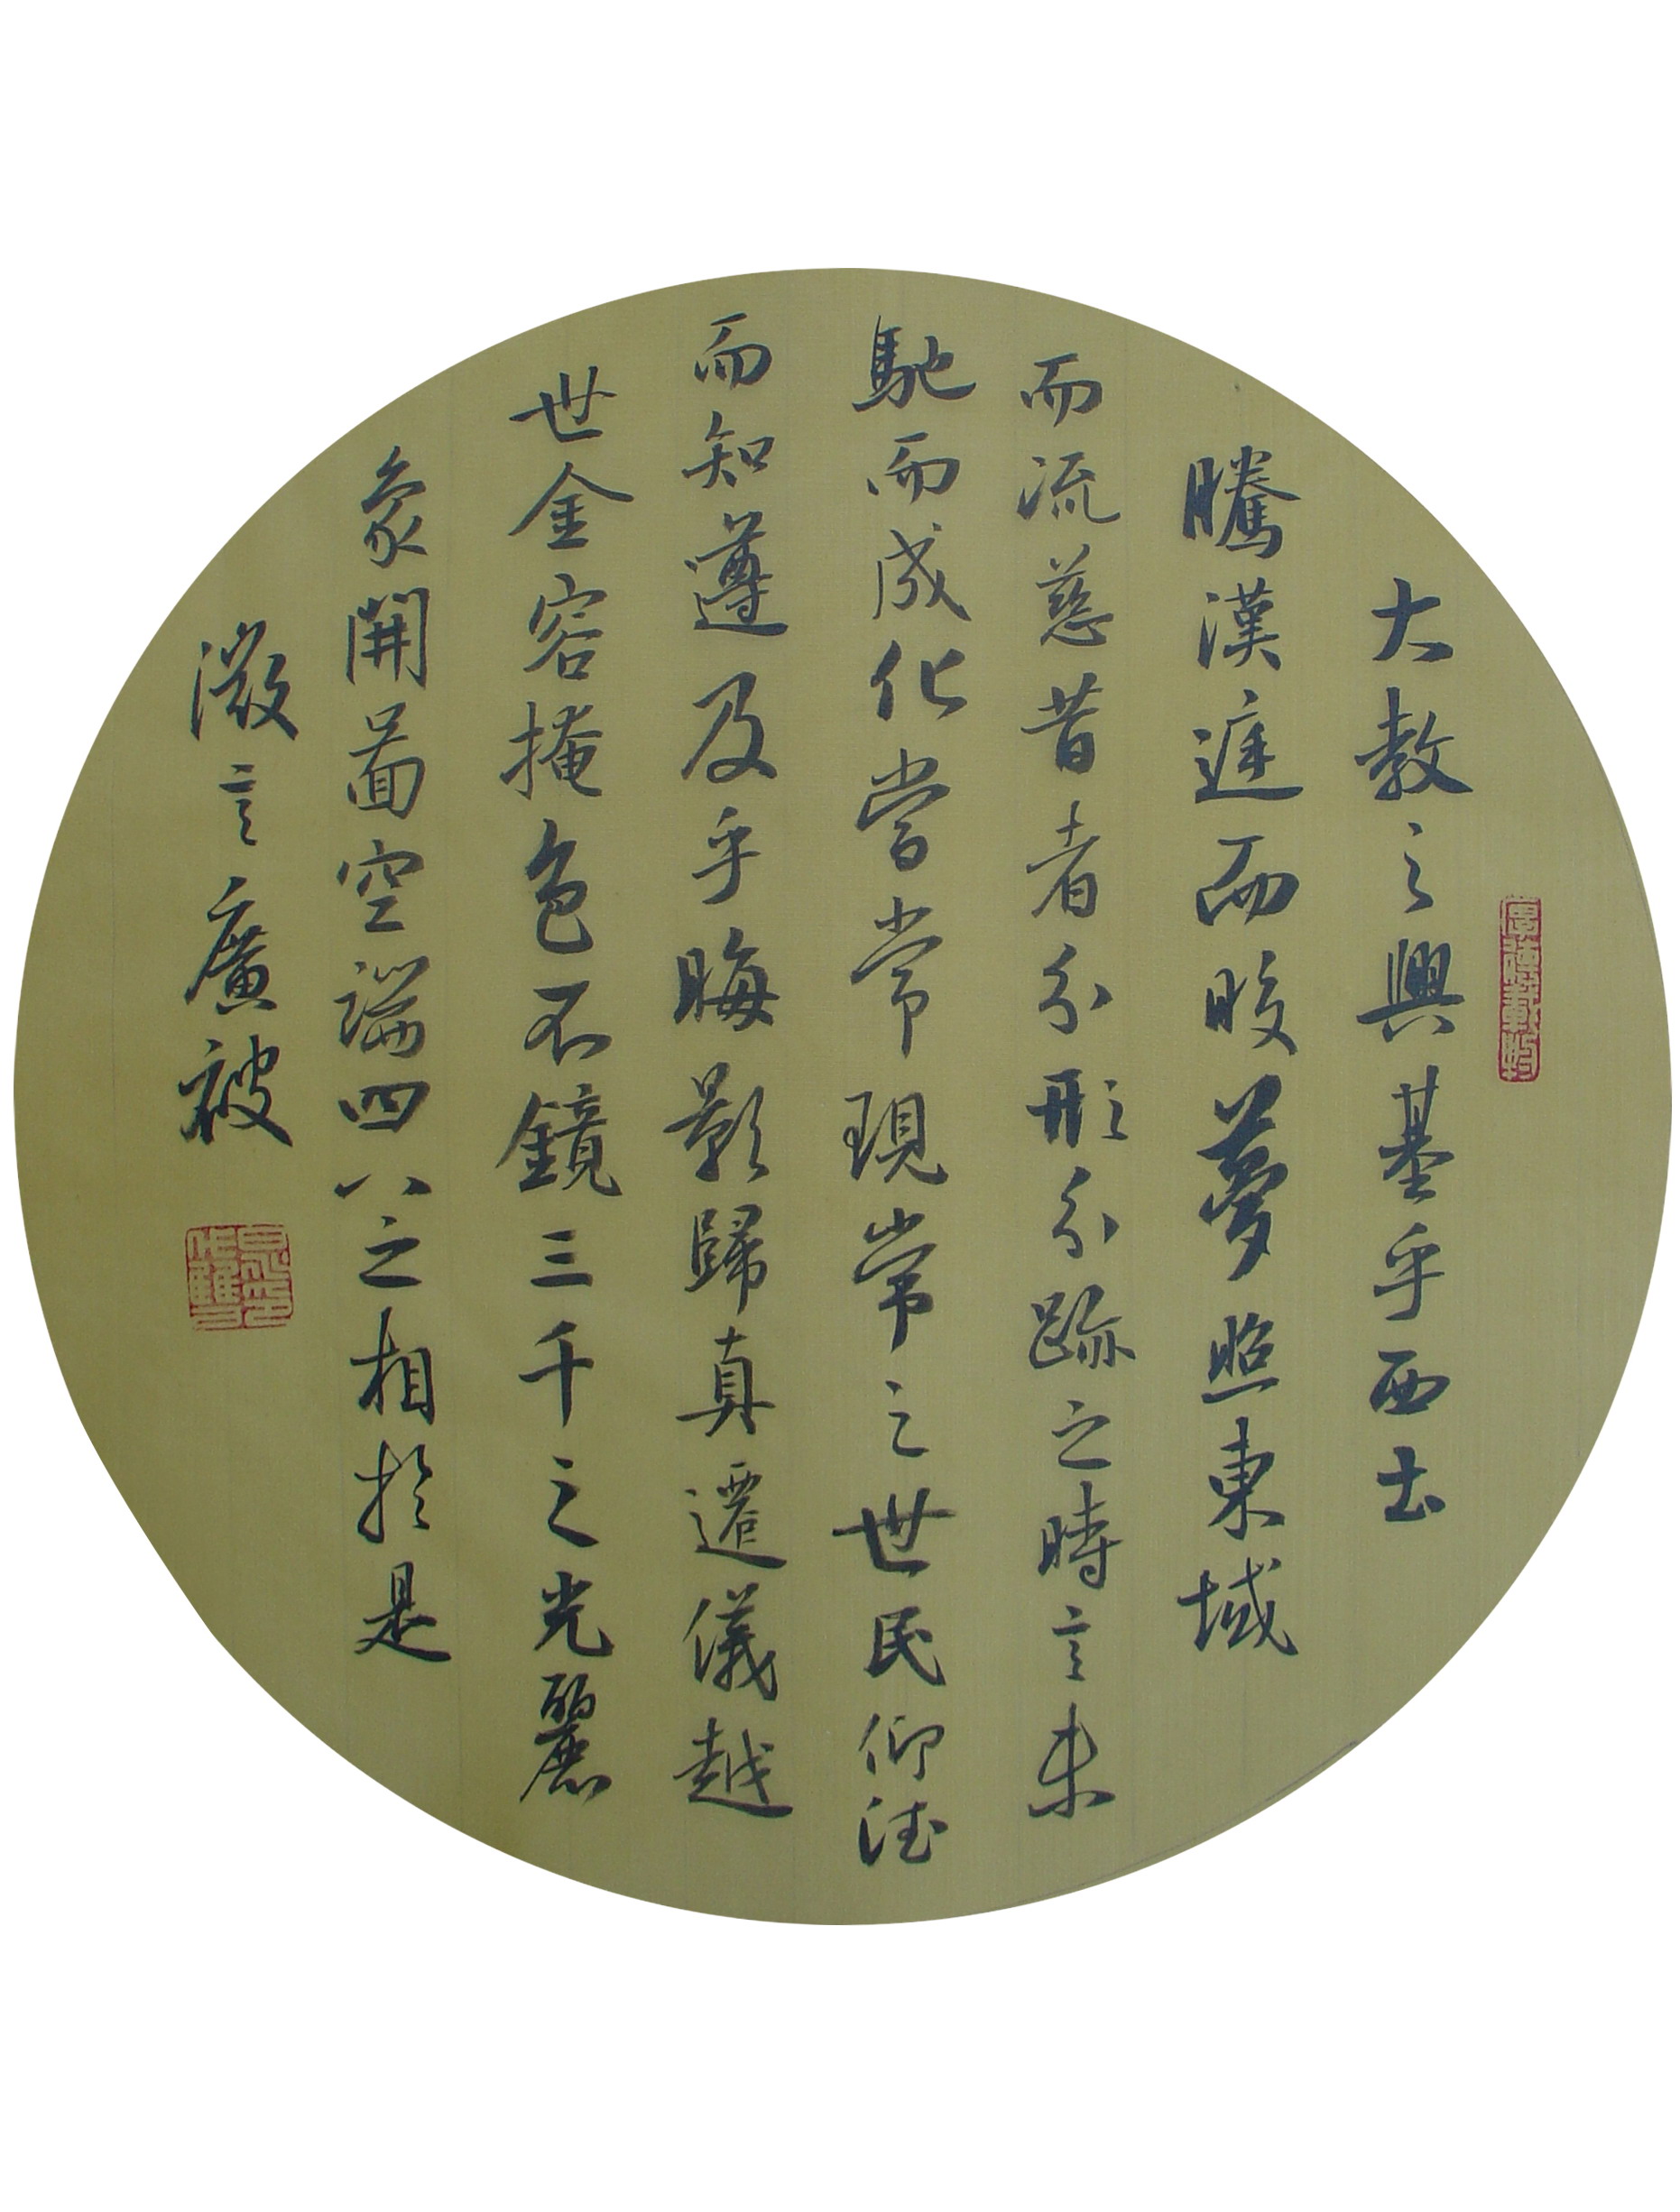 大教之興基乎西土
騰漢庭而皎夢照東域
而流慈昔者分形分跡之時言未
馳而成化當常現常之世民仰德
而知遵及乎晦影歸真遷儀越
世金容掩色不鏡三千之光麗
象開圖空端四八之相於是
微言廣被